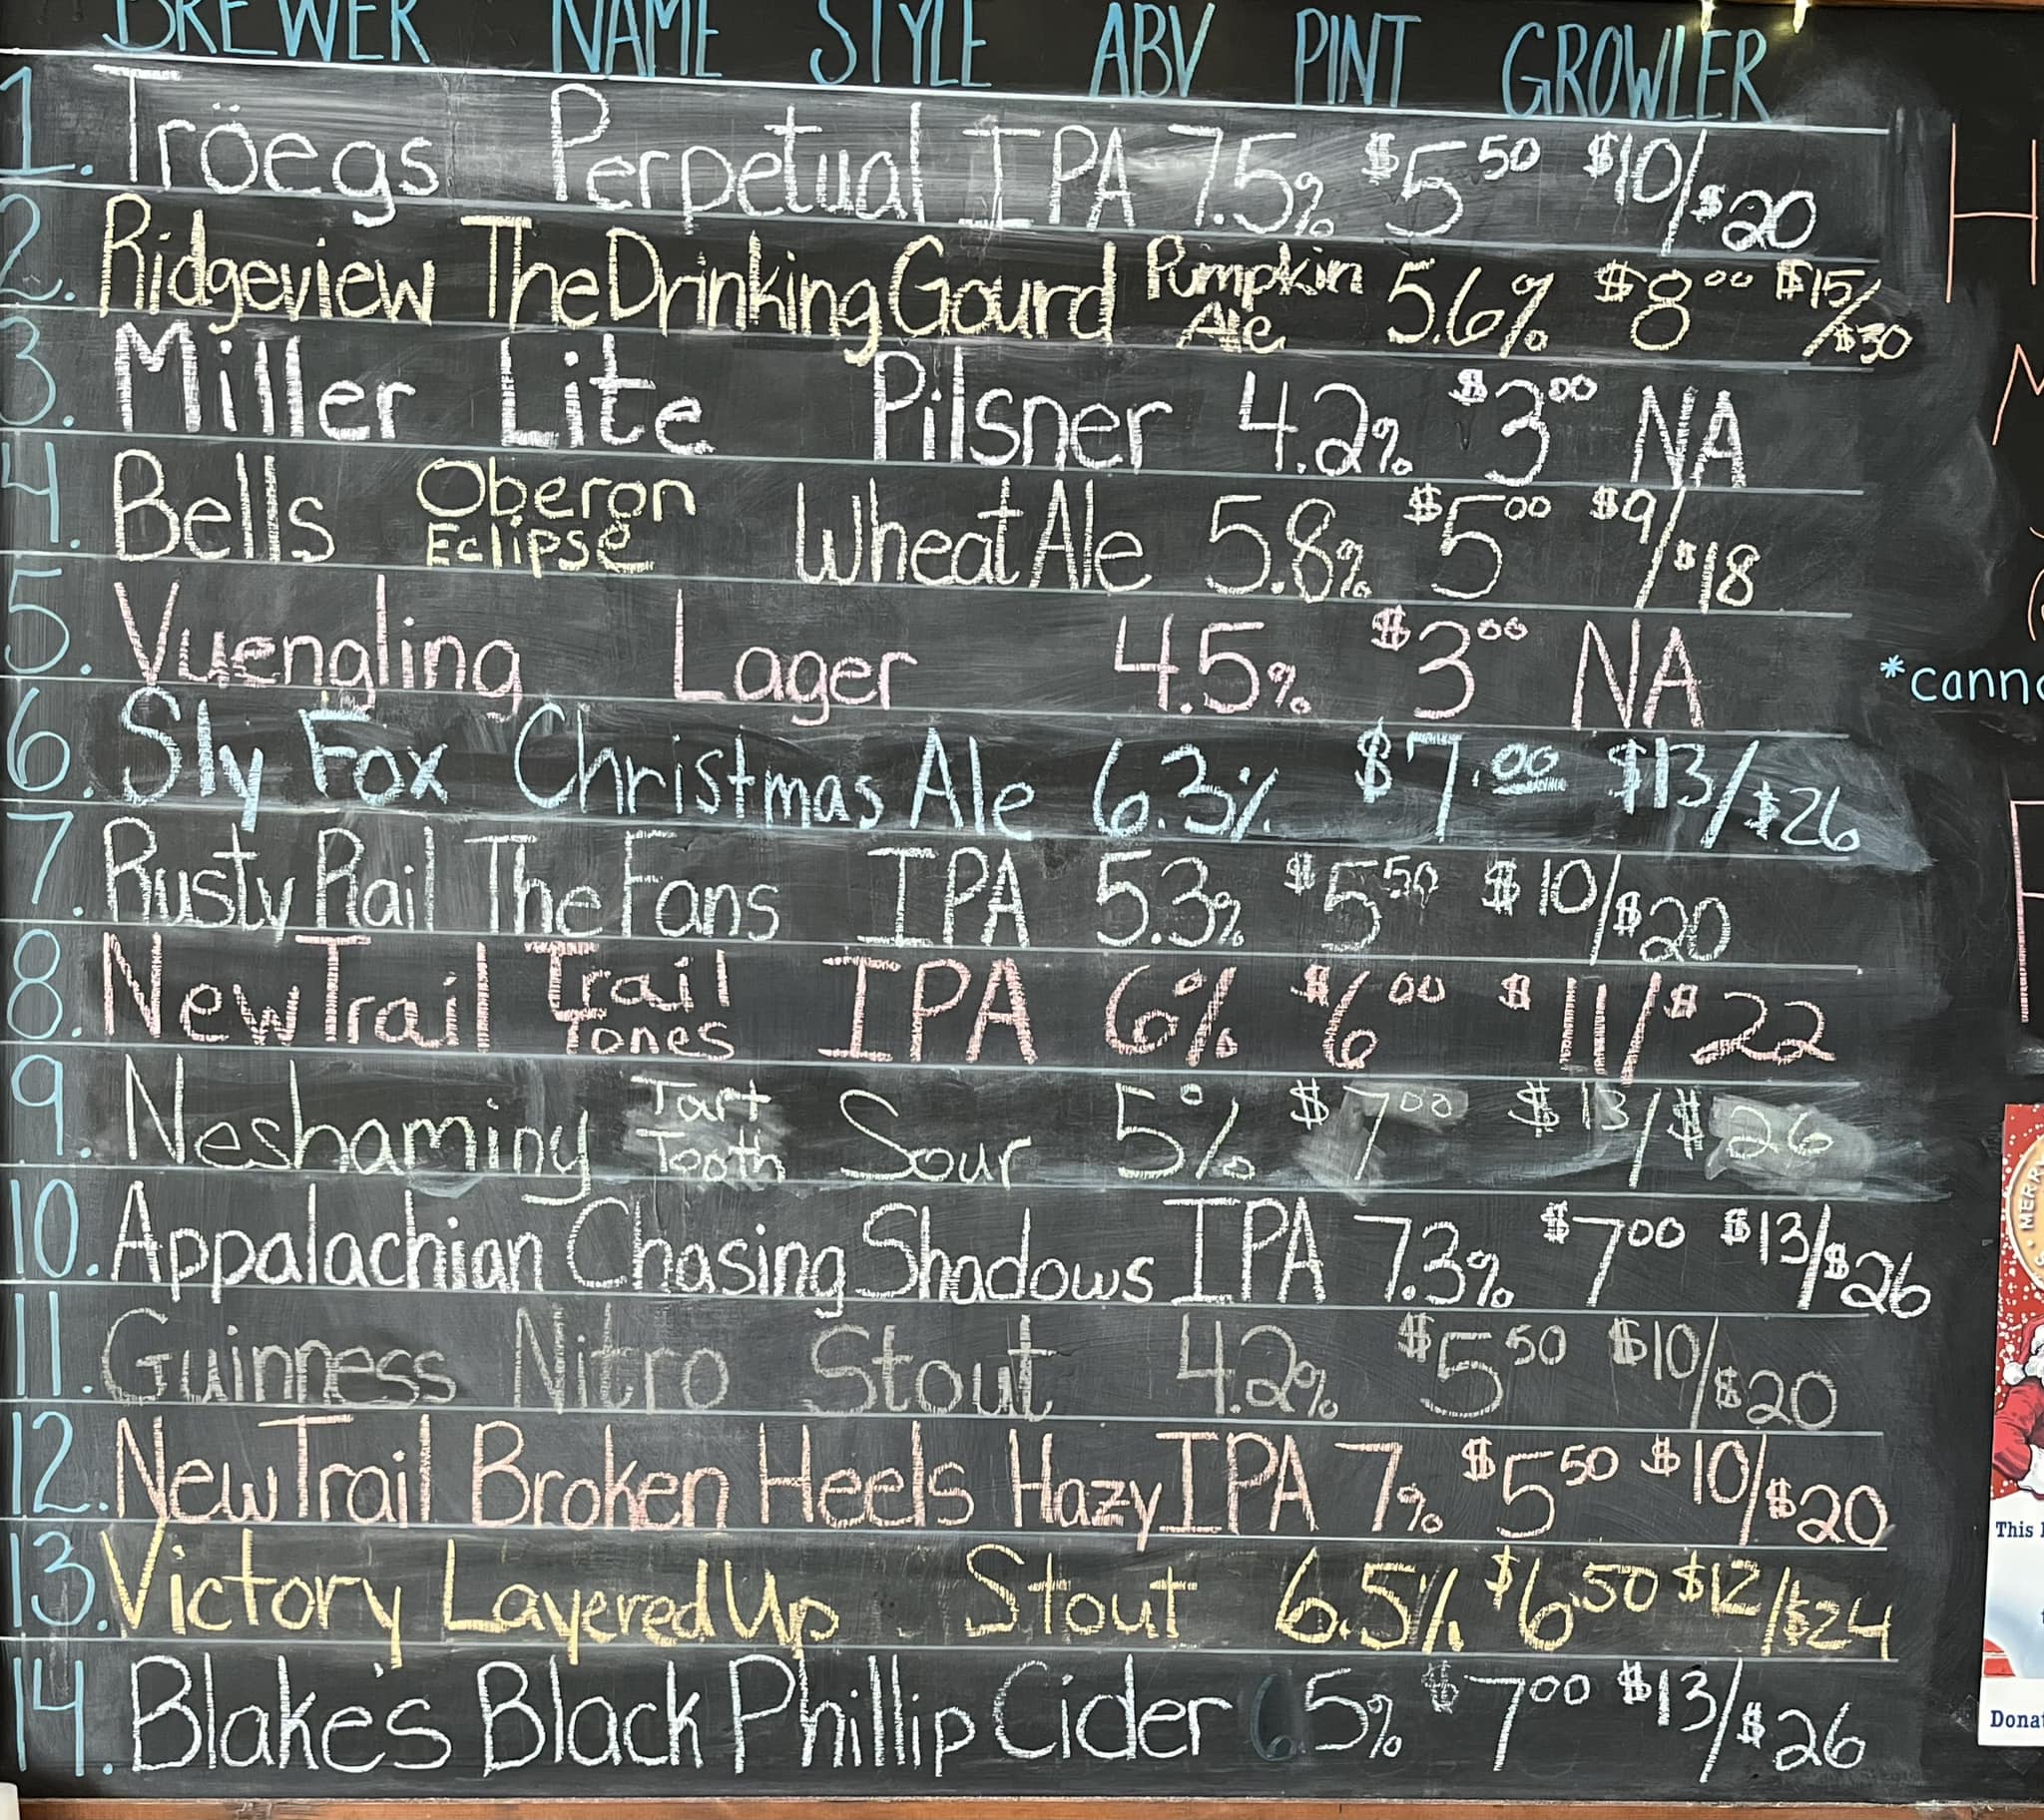 BREWER NAME STYLE ABV PINT GROWLER
1. Tröegs Perpetual IPA 7.5% $5 50 $10/$20
2. Ridgeview The Drinking Gourd Pumpkin Ale 5.6% $8 00 $15/$30
3. Miller Lite Pilsner 4.2% $3 00 NA
4. Bells Oberon Eclipse Wheat Ale 5.8% $5 00 $9/$18
5. Yuengling Lager 4.5% $3 00 NA
*canno
6. Sly Fox Christmas Ale 6.3% $7.00 $13/$26
7. Rusty Rail The Fans IPA 5.3% $5 50 $10/$20
8. New Trail Trail Tones IPA 6% $6 00 $11/$22
9. Neshaminy Tart Tooth Sour 5% $7 00 $13/$26
10. Appalachian Chasing Shadows IPA 7.3% $7 00 $13/$26
11. Guinness Nitro Stout 4.2% $5 50 $10/$20
12. New Trail Broken Heels Hazy IPA 7% $5 50 $10/$20
This
13. Victory Layered Up Stout 6.5% $6.50 $12/$24
14. Blake's Black Phillip Cider 5% $7 00 $13/$26
Donat